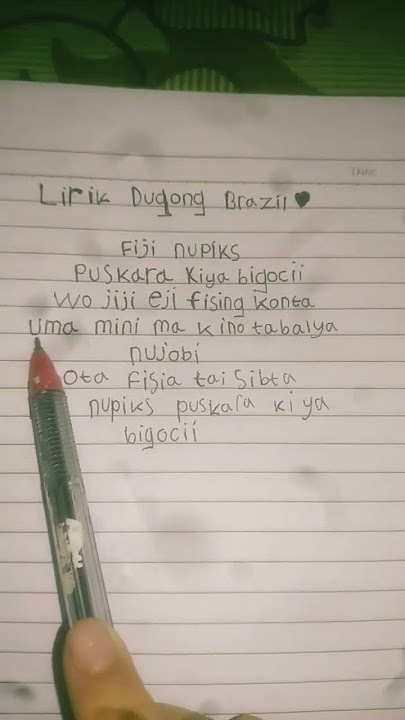 Lirik Dugong Brazil ♥
Fiji nupiks
Puskara Kiya bigocii
Wo jiji eji fising konta
Uma mini ma kino tabalya
nujobi
Ota Fisia tai Sibta
nupiks puskara ki ya
bigocii